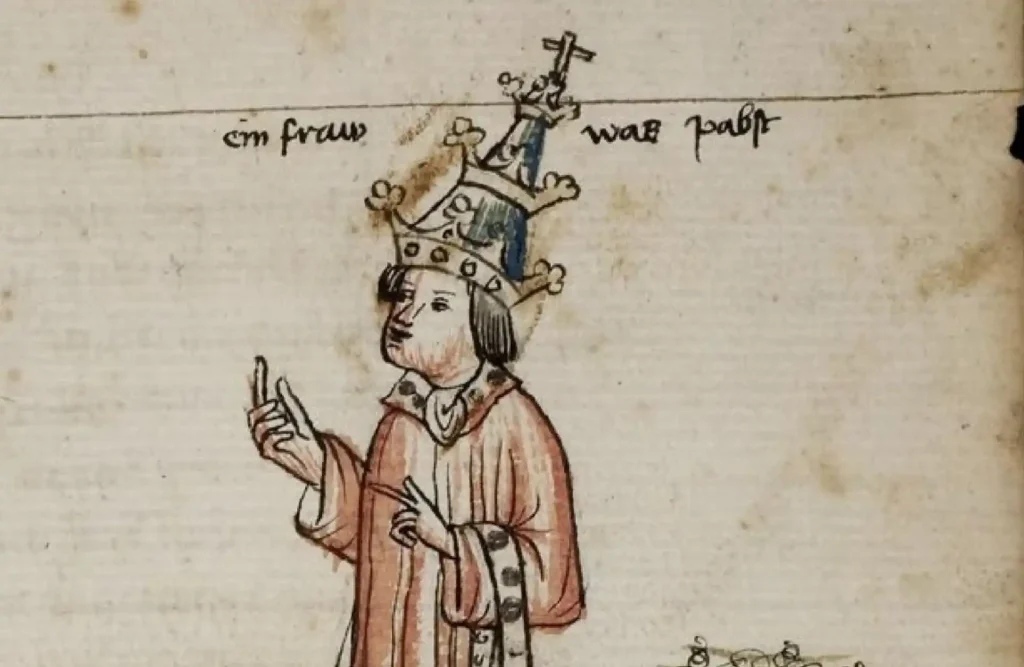 ein fraw was pabst